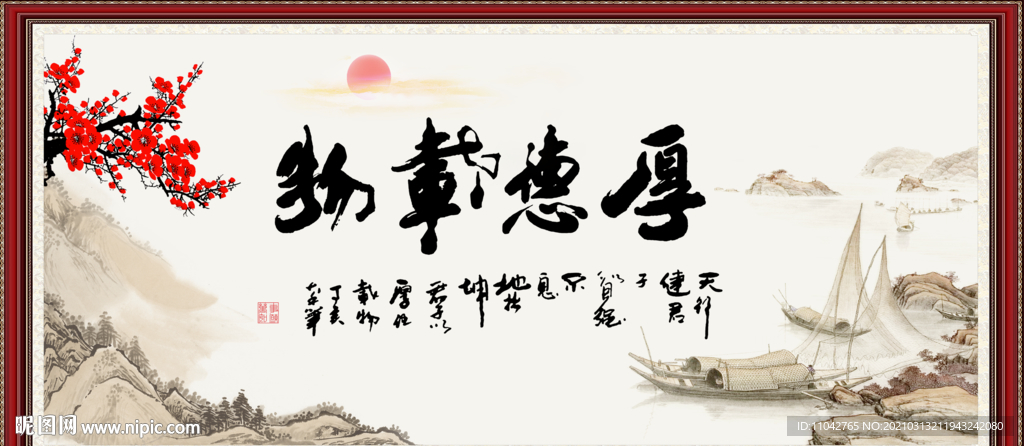 厚德載物
天行
健君
子
以自强
不
息
地势
坤
君子以
厚德
載物
丁亥
昵图网 www.nipic.com
ID:11042765 NO:20210313211943242080